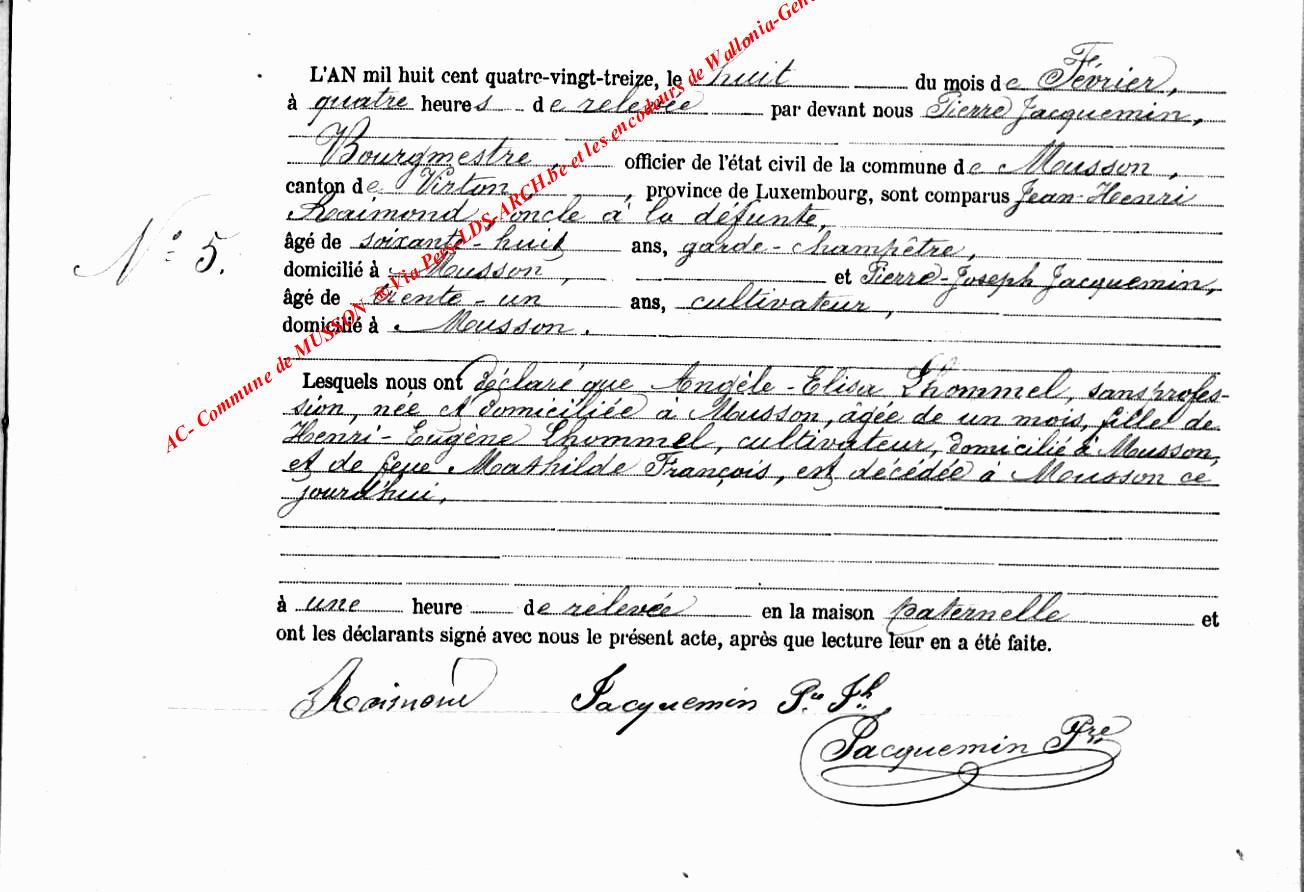 L'AN mil huit cent quatre-vingt-treize, le huit du mois de Février,
à quatre heures de relevée par devant nous Pierre Jacquemin,
Bourgmestre, officier de l'état civil de la commune de Musson,
canton de Virton, province de Luxembourg, sont comparus Jean-Henri
Raimond, oncle à la défunte,
N° 5.
âgé de soixante-huit ans, garde-champêtre,
domicilié à Musson, et Pierre-Joseph Jacquemin,
âgé de trente-un ans, cultivateur,
domicilié à Musson.
Lesquels nous ont déclaré que Angèle-Elisa Lhommel, sans profes-
sion, née et domiciliée à Musson, âgée de un mois, fille de
Henri-Eugène Lhommel, cultivateur, domicilié à Musson,
et de feue Mathilde François, est décédée à Musson ce
jourd'hui,
à une heure de relevée en la maison paternelle et
ont les déclarants signé avec nous le présent acte, après que lecture leur en a été faite.
Raimond Jacquemin Pre Jh
Jacquemin Pre
AC- Commune de MUSSON @Via Pers-LDS-ARCH.be et les encodeurs de Wallonia-Gen